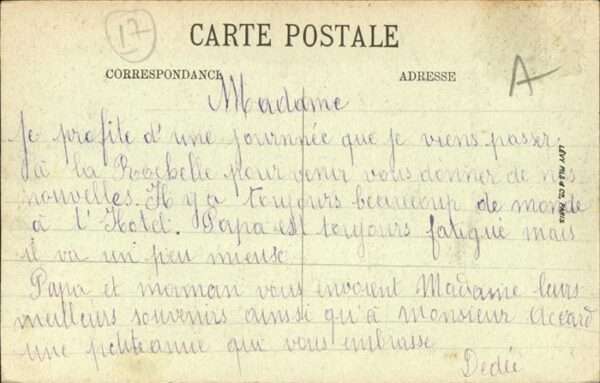 17
CARTE POSTALE
CORRESPONDANCE ADRESSE
A
Madame
Je profite d'une journnée que je viens passer
à la Rochelle pour venir vous donner de nos
nouvelles. Il y a toujours beaucoup de monde
à l'Hotel. Papa est toujours fatigué mais
il va un peu mieuse
Papa et maman vous envoient Madame leurs
meilleurs souvenirs ainssi qu'à Monsieur Accard
une petite amie qui vous embrasse
Dedée
LÉVY FILS & CIE PARIS